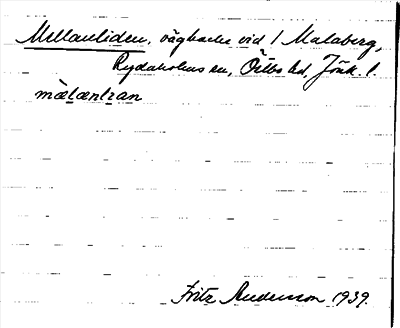 Mellanliden, vägbacke vid 1 Malaberg,
Rydaholms sn, Östbo hd, Jönk. l.
mælænlıan
Fritz Anderson 1939.